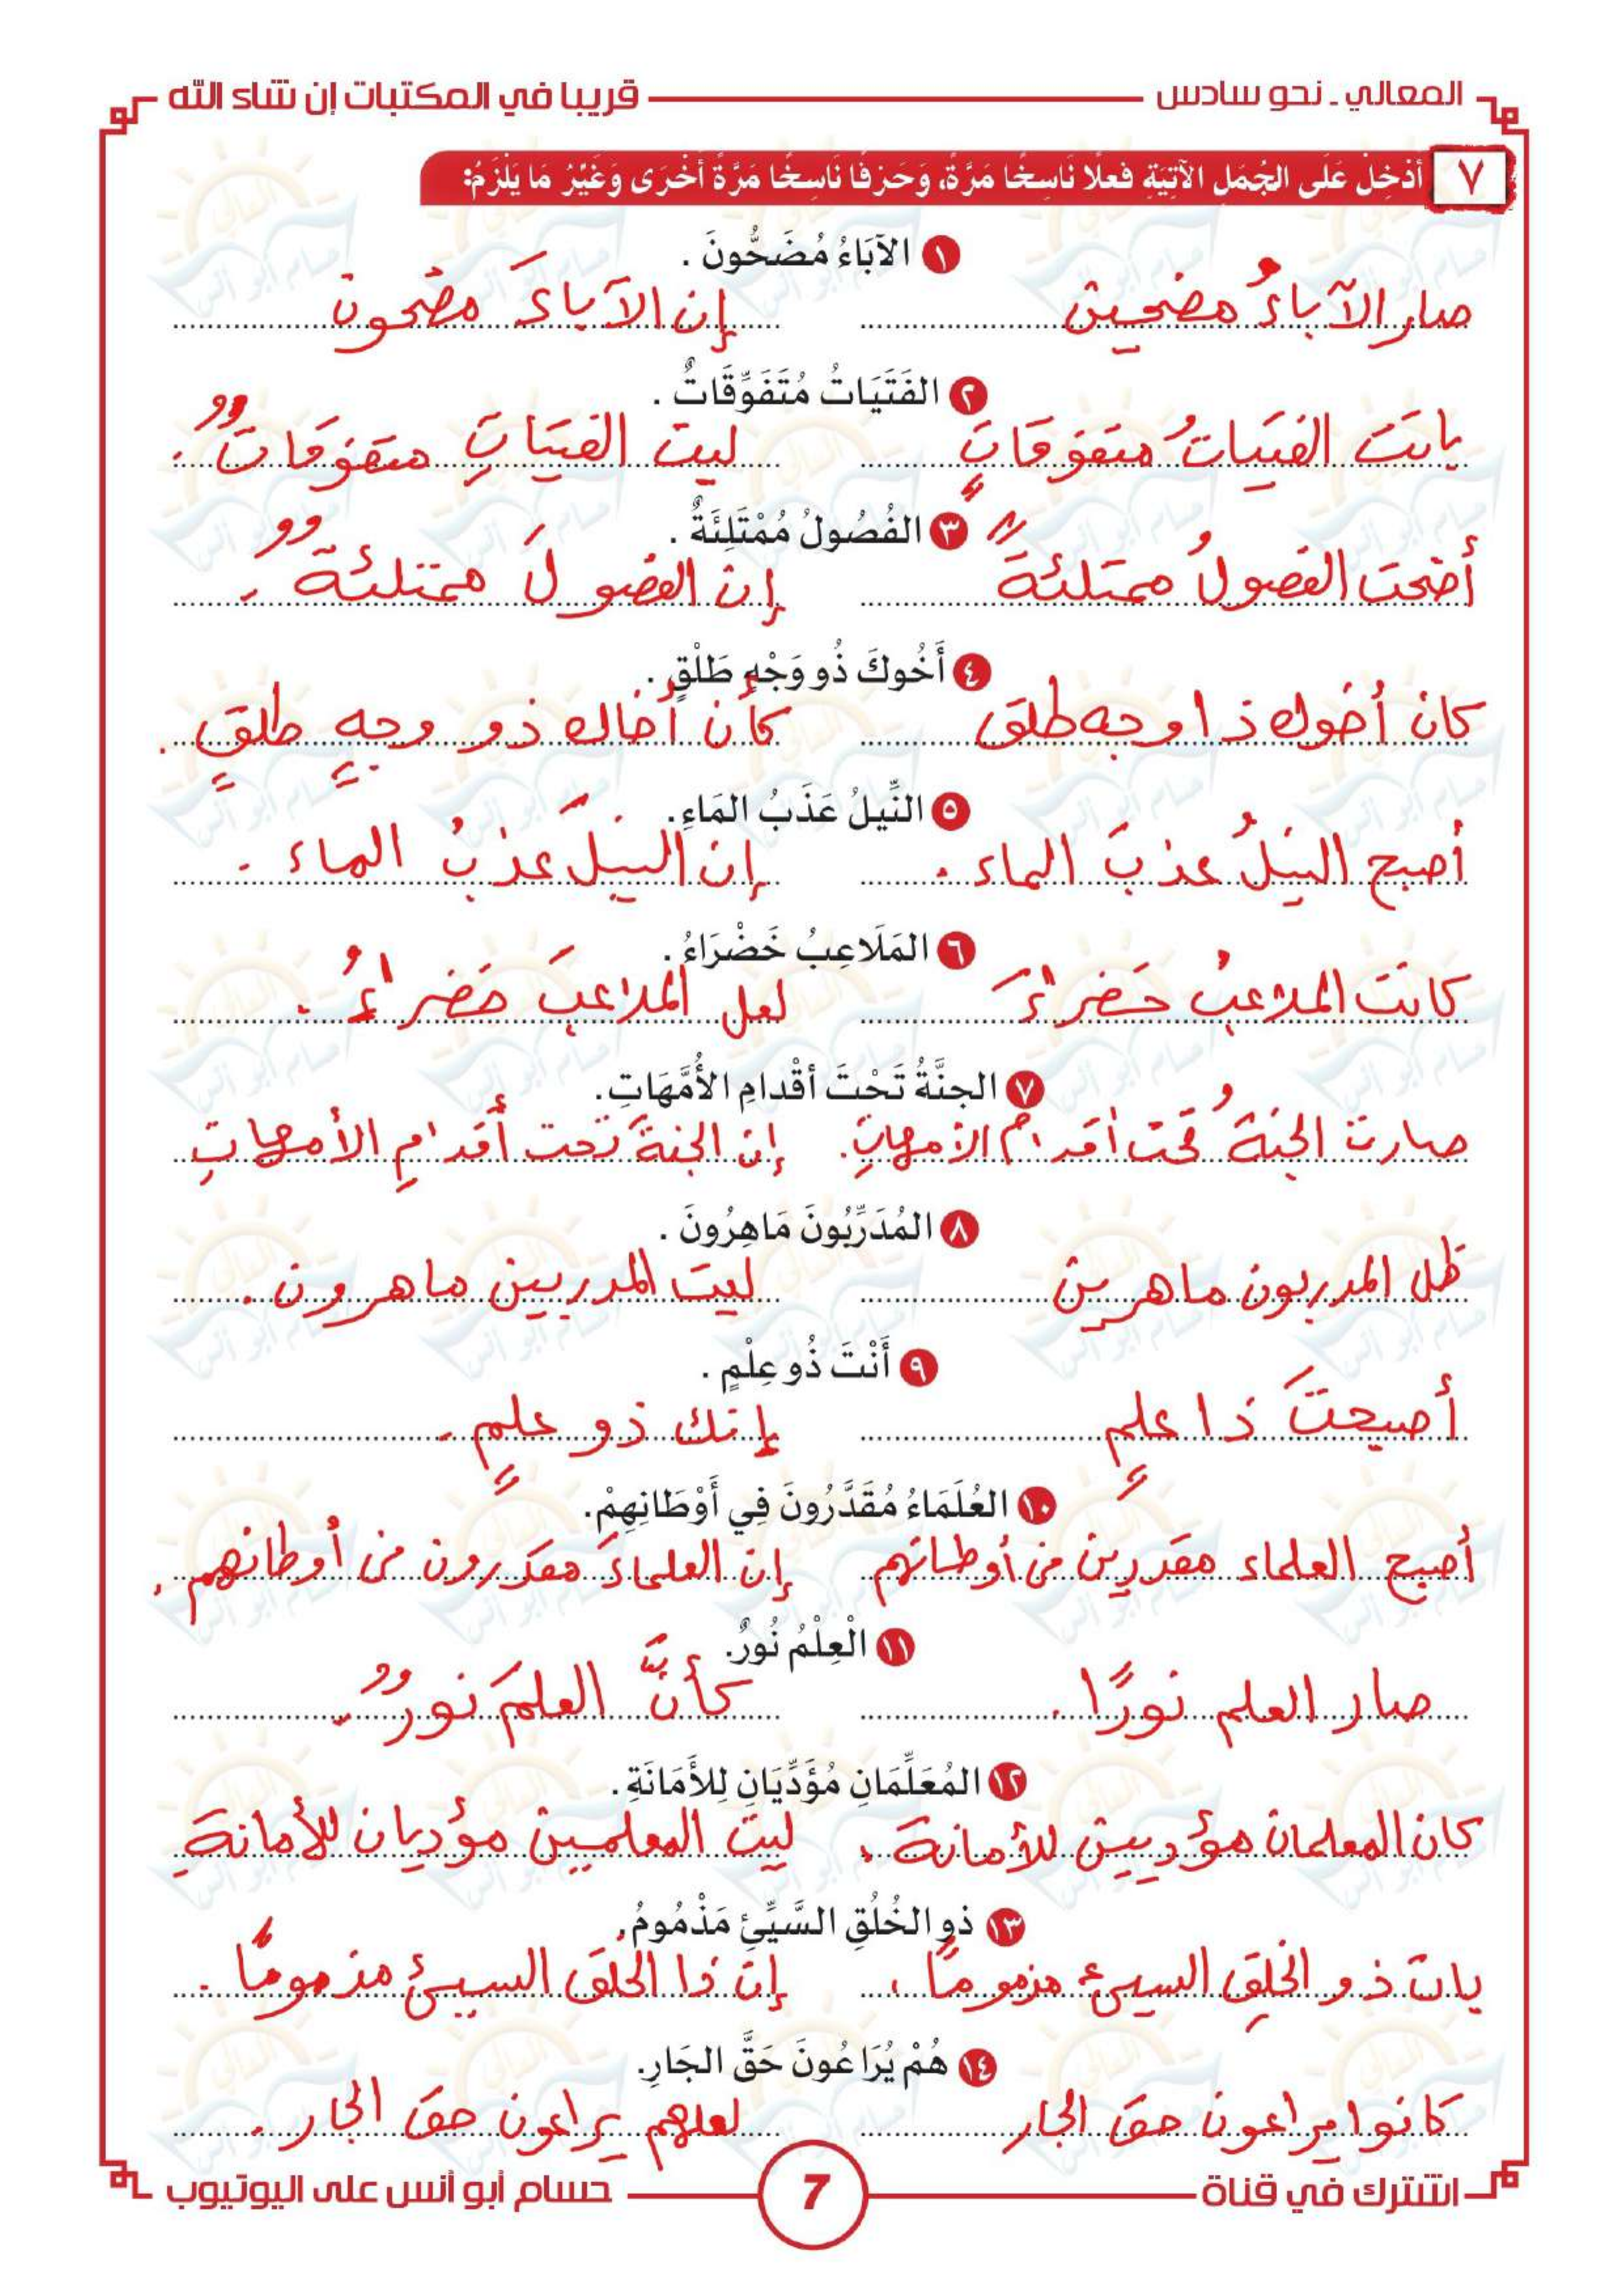 المعالي - نحو سادس
قريبا في المكتبات إن شاء الله
٧ أدْخِلْ عَلَى الجُمَلِ الآتِيَةِ فعلًا نَاسِخًا مَرَّةً، وَحَرْفًا نَاسِخًا مَرَّةً أخْرَى وَغَيِّرْ مَا يَلْزَمُ:
١ الآبَاءُ مُضَحُّونَ .
صار الآباءُ مضحين إن الآباءَ مضحون
٢ الفَتَيَاتُ مُتَفَوِّقَاتٌ .
باتت الفتياتُ متفوقاتٍ ليت الفتياتِ متفوقاتٌ .
٣ الفُصُولُ مُمْتَلِئَةٌ .
أضحت الفصولُ ممتلئةً إن الفصولَ ممتلئةٌ .
٤ أَخُوكَ ذُو وَجْهٍ طَلْقٍ .
كان أخوك ذا وجه طلق كأن أخاك ذو وجهٍ طلقٍ .
٥ النِّيلُ عَذَبُ المَاءِ .
أصبح النيلُ عذبَ الماء . إن النيلَ عذبُ الماء .
٦ المَلَاعِبُ خَضْرَاءُ .
كانت الملاعبُ خضراءَ لعل الملاعبَ خضراءُ .
٧ الجنَّةُ تَحْتَ أقْدامِ الأُمَّهَاتِ .
صارت الجنةُ تحت أقدام الأمهاتِ . إن الجنةَ تحت أقدامِ الأمهاتِ
٨ المُدَرِّبُونَ مَاهِرُونَ .
ظل المدربون ماهرين ليت المدربين ماهرون .
٩ أَنْتَ ذُو عِلْمٍ .
أصبحتَ ذا علمٍ إنك ذو علمٍ .
١٠ العُلَمَاءُ مُقَدَّرُونَ فِي أَوْطَانِهِمْ .
أصبح العلماء مقدرين في أوطانهم إن العلماءَ مقدرون في أوطانهم .
١١ الْعِلْمُ نُورٌ .
صار العلم نورًا . كأنَّ العلمَ نورٌ .
١٢ المُعَلِّمَانِ مُؤَدِّيَانِ لِلأَمَانَةِ .
كان المعلمان مؤديين للأمانة . ليت المعلمين مؤديان للأمانةِ
١٣ ذو الخُلُقِ السَّيِّئِ مَذْمُومُ .
بات ذو الخلقِ السيئ مذمومًا . إن ذا الخلق السيئ مذمومًا .
١٤ هُمْ يُرَاعُونَ حَقَّ الجَارِ .
كانوا يراعون حق الجار لعلهم يراعون حق الجار .
اشترك في قناة
7
حسام أبو أنس على اليوتيوب